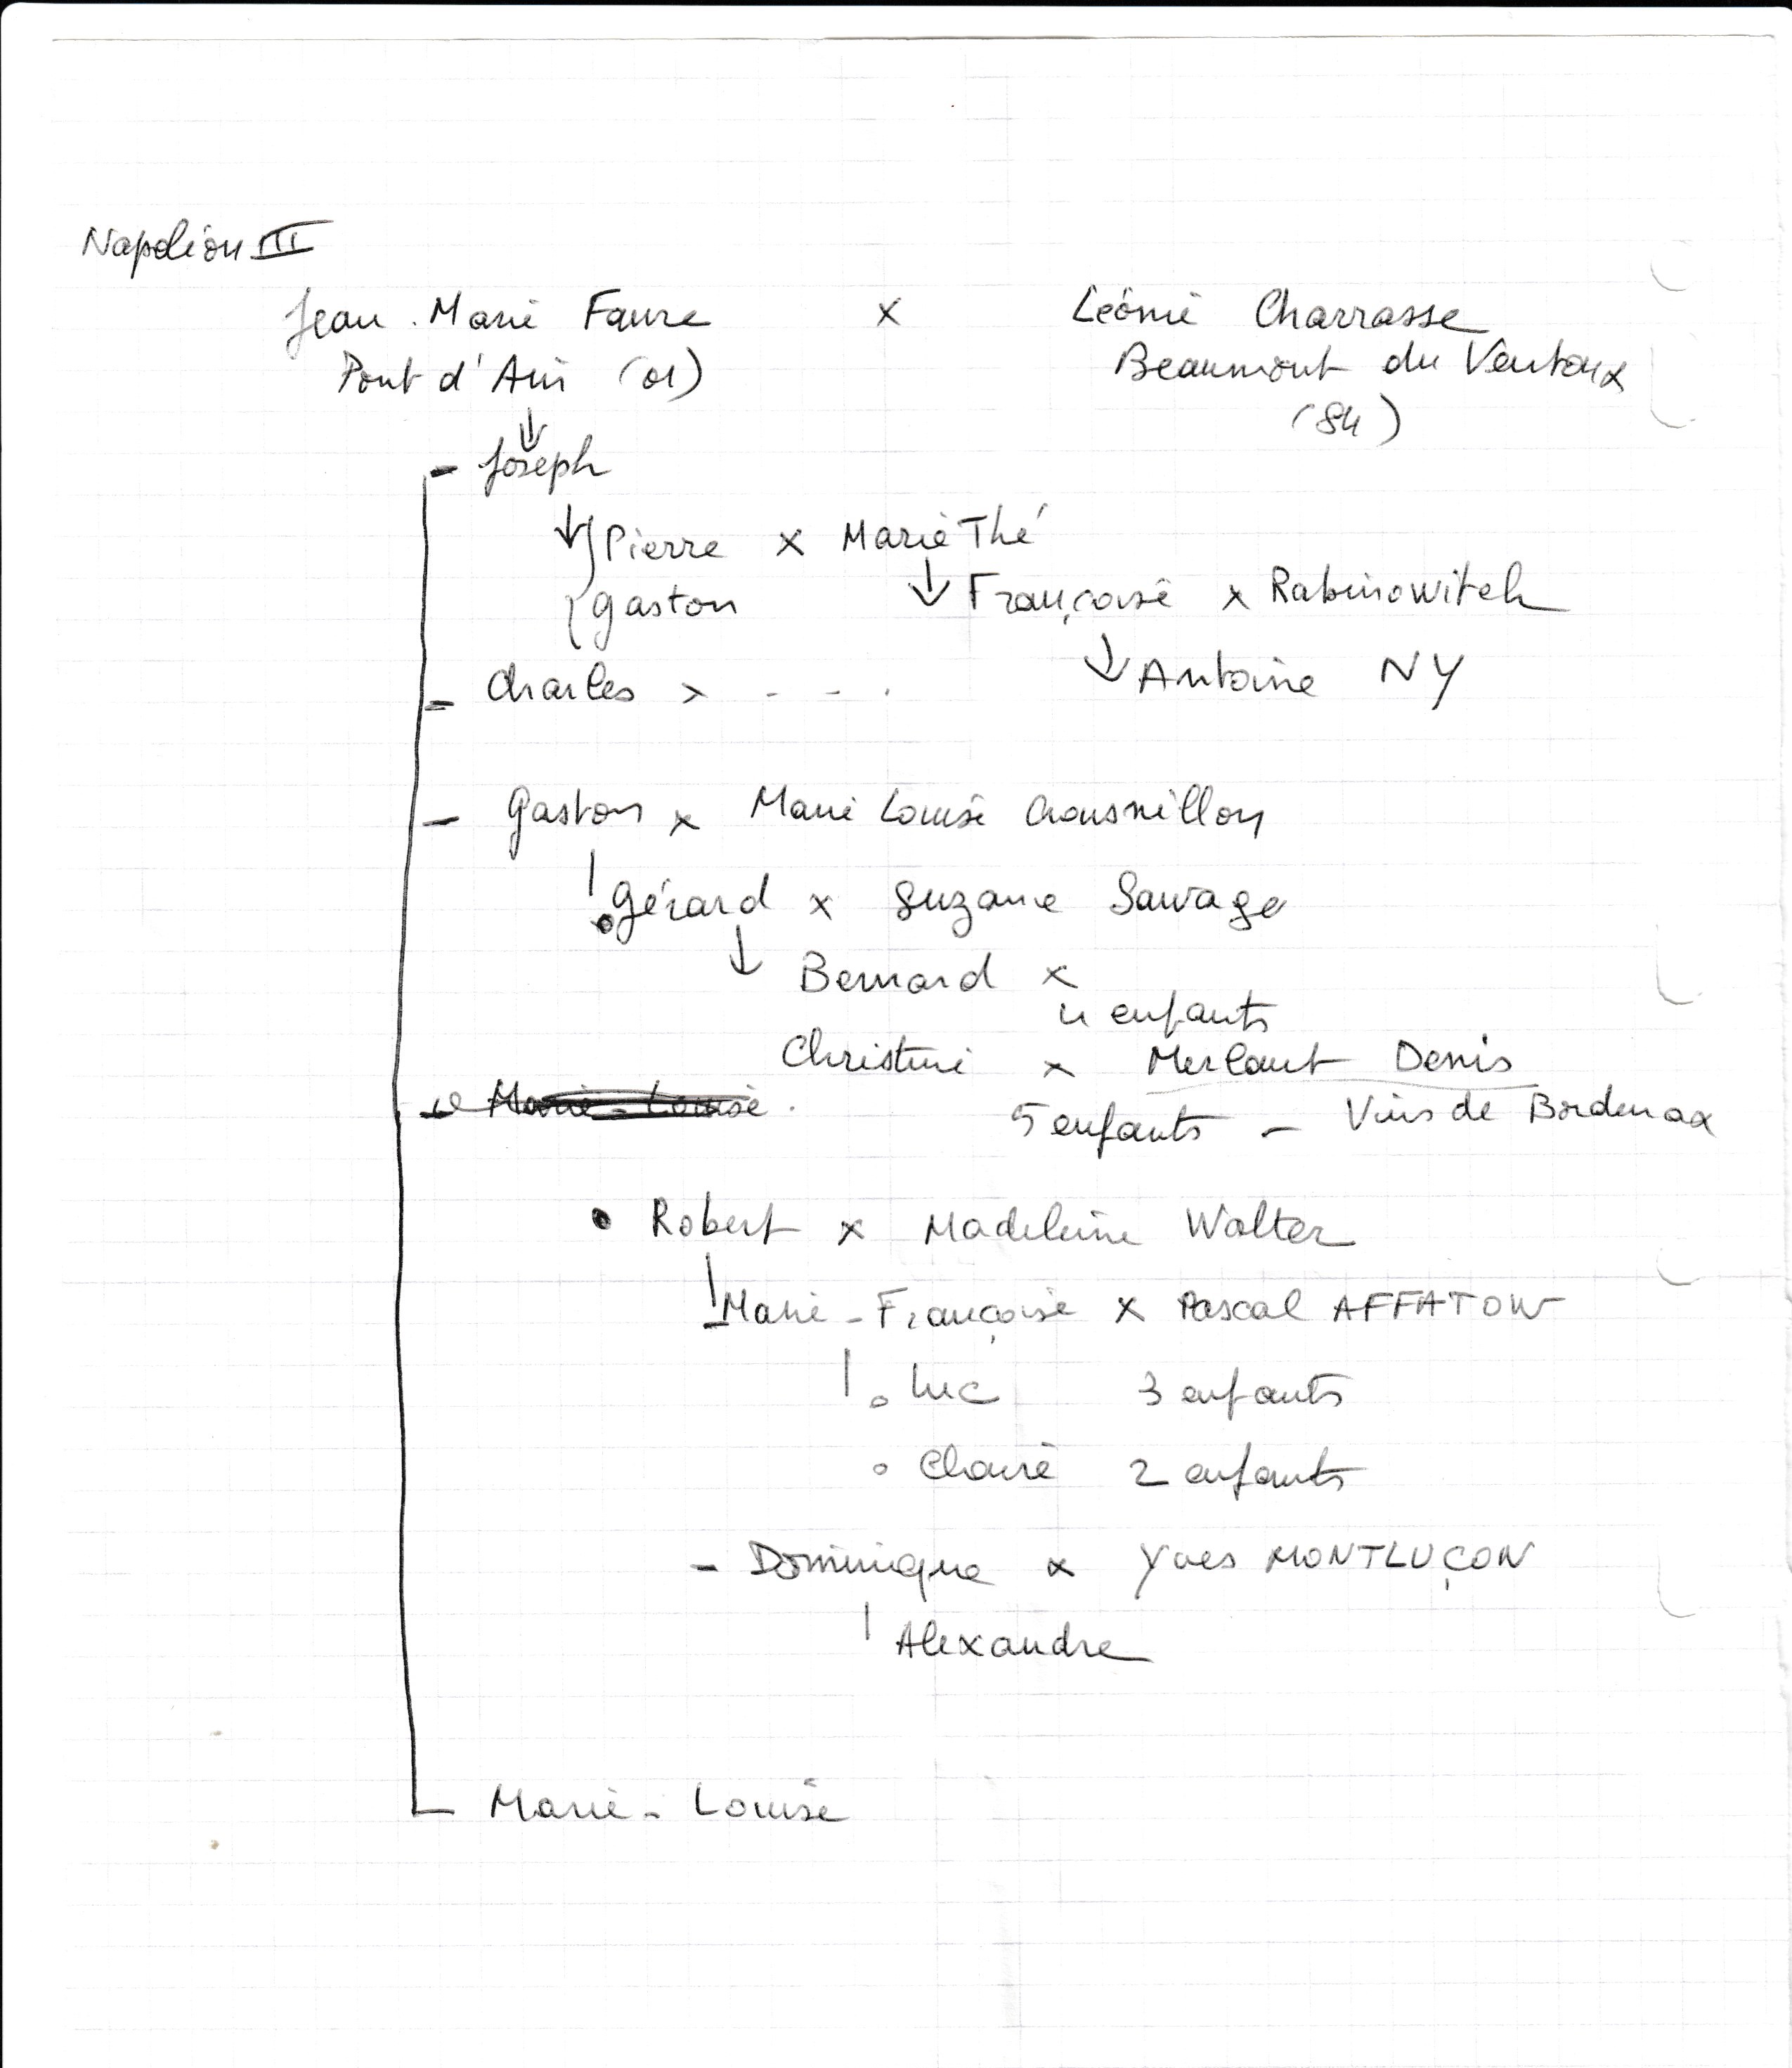 Napoléon III
Jean-Marie Faure x Léonie Charrasse
Pont d'Ain (01) Beaumont du Ventoux
(84)
- Joseph
Pierre x Marie Thé
Gaston Françoise x Rabinowitch
Antoine NY
- Charles x - - - .
- Gaston x Marie Louise
Gérard x Suzanne Sauvage
Bernard x
4 enfants
Christine x Merlaut Denis
Marie-Louise
5 enfants - Vins de Bordeaux
• Robert x Madeleine Walter
Marie-Françoise x Pascal AFFATON
Luc 3 enfants
Claire 2 enfants
- Dominique x Yves MONTLUÇON
Alexandre
Marie-Louise